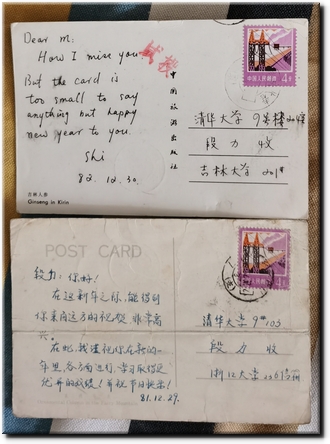 Dear m:
How I miss you
But the card is
too small to say
anything but happy
new year to you.
Shi
82.12.30.
吉林人参
Ginseng in Kirin
中国旅游出版社
中国人民邮政 4分
清华大学 9号楼
段力 收
吉林大学
POST CARD
段力:你好!
在这新年之际,能得到
你来自远方的祝愿,非常高
兴。
在此,我谨祝你在新的一
年里,各方面进行,学习取得
优异的成绩!并祝节日快乐!
81.12.29.
清华大学 9# 103
段力 收
浙江大学